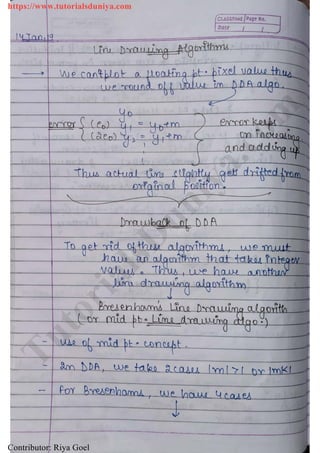 https://www.tutorialsduniya.com
Classmate Page No.
Date
14 Jan, 19
Line Drawing Algorithms
→ We can't plot a floating pt. pixel value thus
we round off value in DDA algo.
y0
error { (e0) y1 = y0+m } error keeps
{ (2e0) y2 = y1+m } on increasing
and adding up
Thus actual line slightly gets drifted from
original position.
Drawback of DDA
To get rid of these algorithms, we must
have an algorithm that takes integer
values. Thus, we have another
line drawing algorithm
Bresenham's Line Drawing algorith
(or mid pt. line drawing algo.)
- Use of mid pt. concept.
- In DDA, we take 2 cases |m|>1 or |m|<1
- For Bresenhams, we have 4 cases
Tutorialsduniya.com
Contributor: Riya Goel